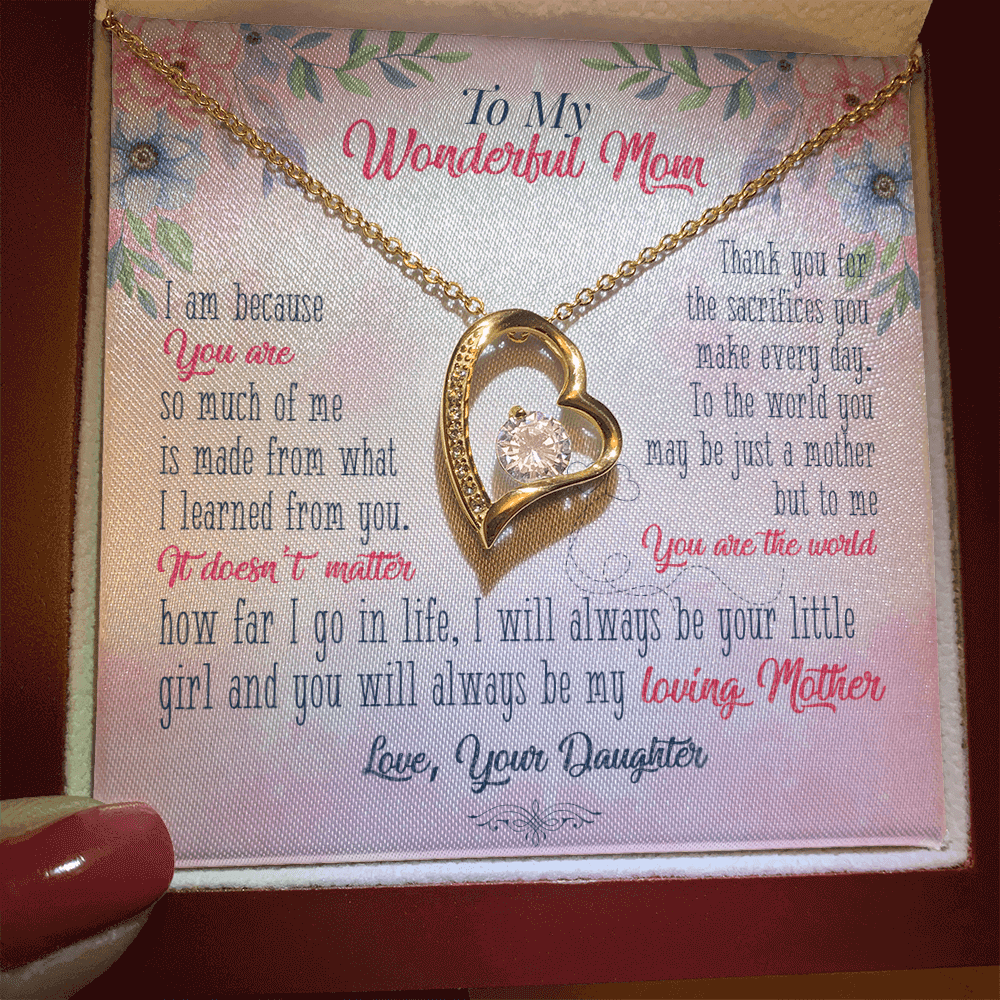 To My
Wonderful Mom
I am because
You are
so much of me
is made from what
I learned from you.
Thank you for
the sacrifices you
make every day.
To the world you
may be just a mother
but to me
You are the world
It doesn't matter
how far I go in life, I will always be your little
girl and you will always be my loving Mother
Love, Your Daughter